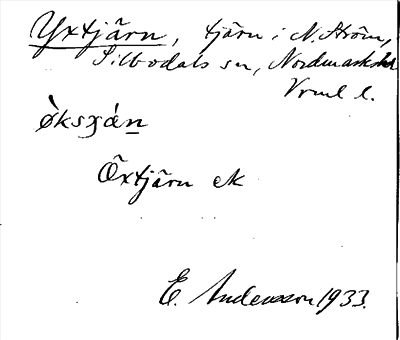 Yxtjärn, tjärn i N. Ström,
Silbodals sn, Nordmarks hd
Vrml l.
ø̀ksʒán
Öxtjärn ek
E. Andersson 1933.